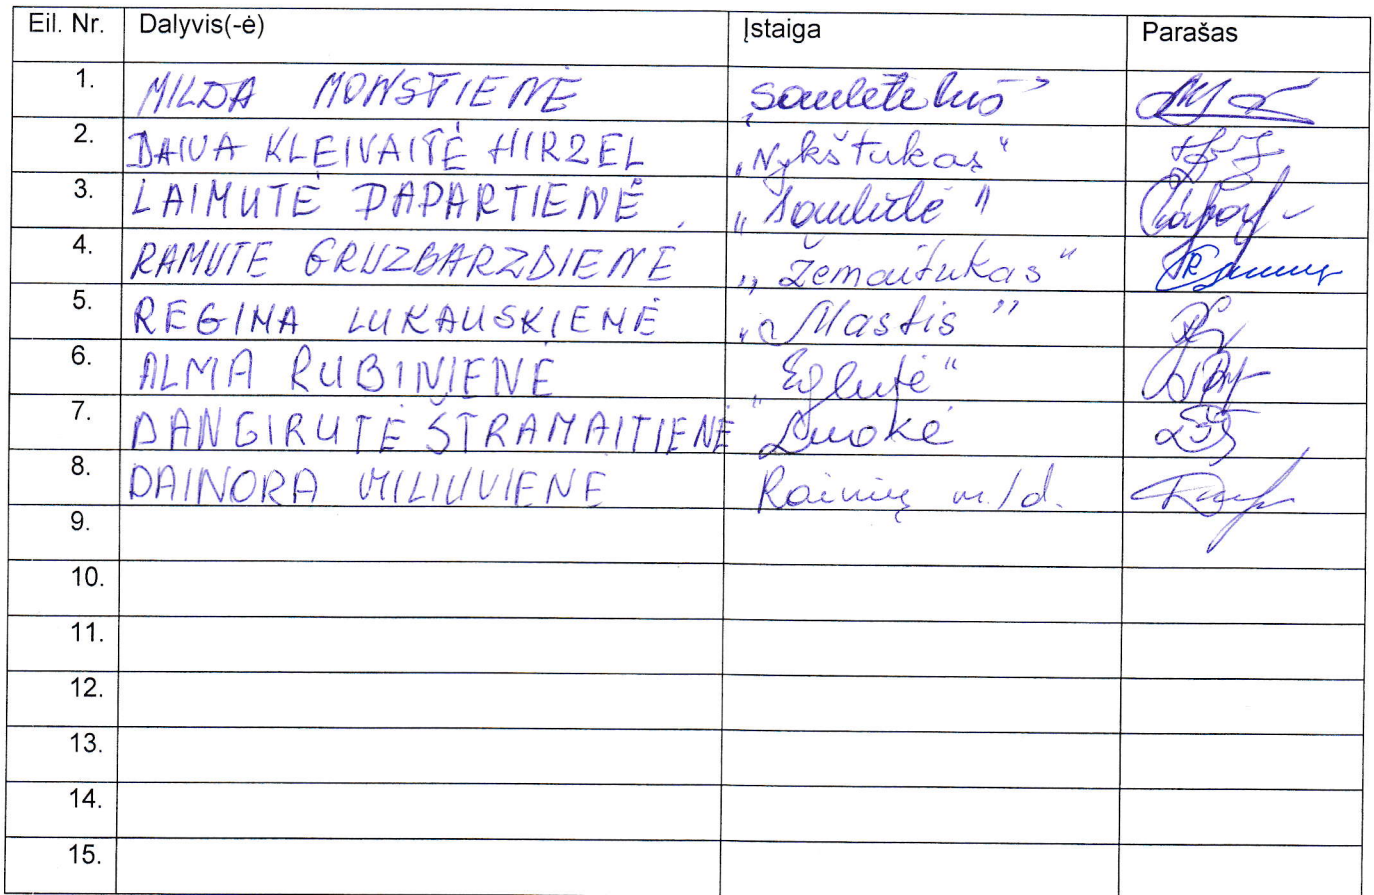 Eil. Nr. Dalyvis(-ė) Įstaiga Parašas
1. MILDA MONSTIENĖ
2. DAIVA KLEIVAITĖ HIRZEL „Nykštukas“
3. LAIMUTĖ PAPARTIENĖ „Saulutė"
4. RAMUTE GRUZBARZDIENĖ „Žemaitukas“
5. REGINA LUKAUSKIENĖ „Mastis”
6. ALMA RUBINIENĖ „Eglutė“
7. DANGIRUTĖ ŠTRAMAITIENĖ
8. DAINORA MILIUVIENE Rainių m./d.
9.
10.
11.
12.
13.
14.
15.